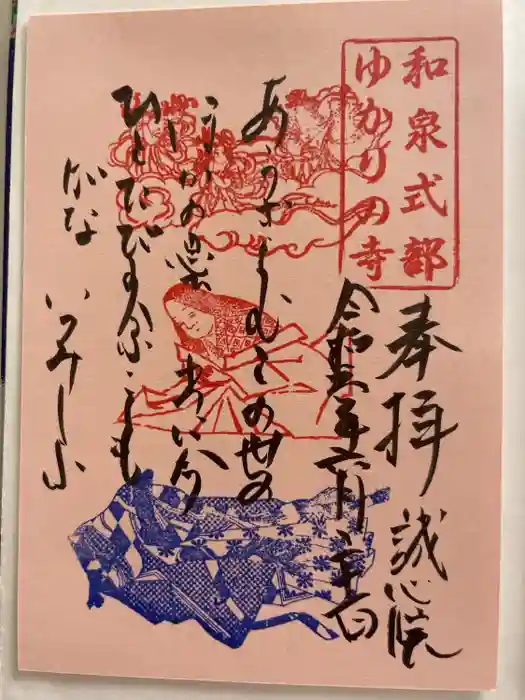 和泉式部
ゆかりの寺
奉拝 誠心院
令和 年六月二十 日
あらざらむこの世の
ほかの思ひ出に今
ひとたびのあふことも
がな いづみしきぶ